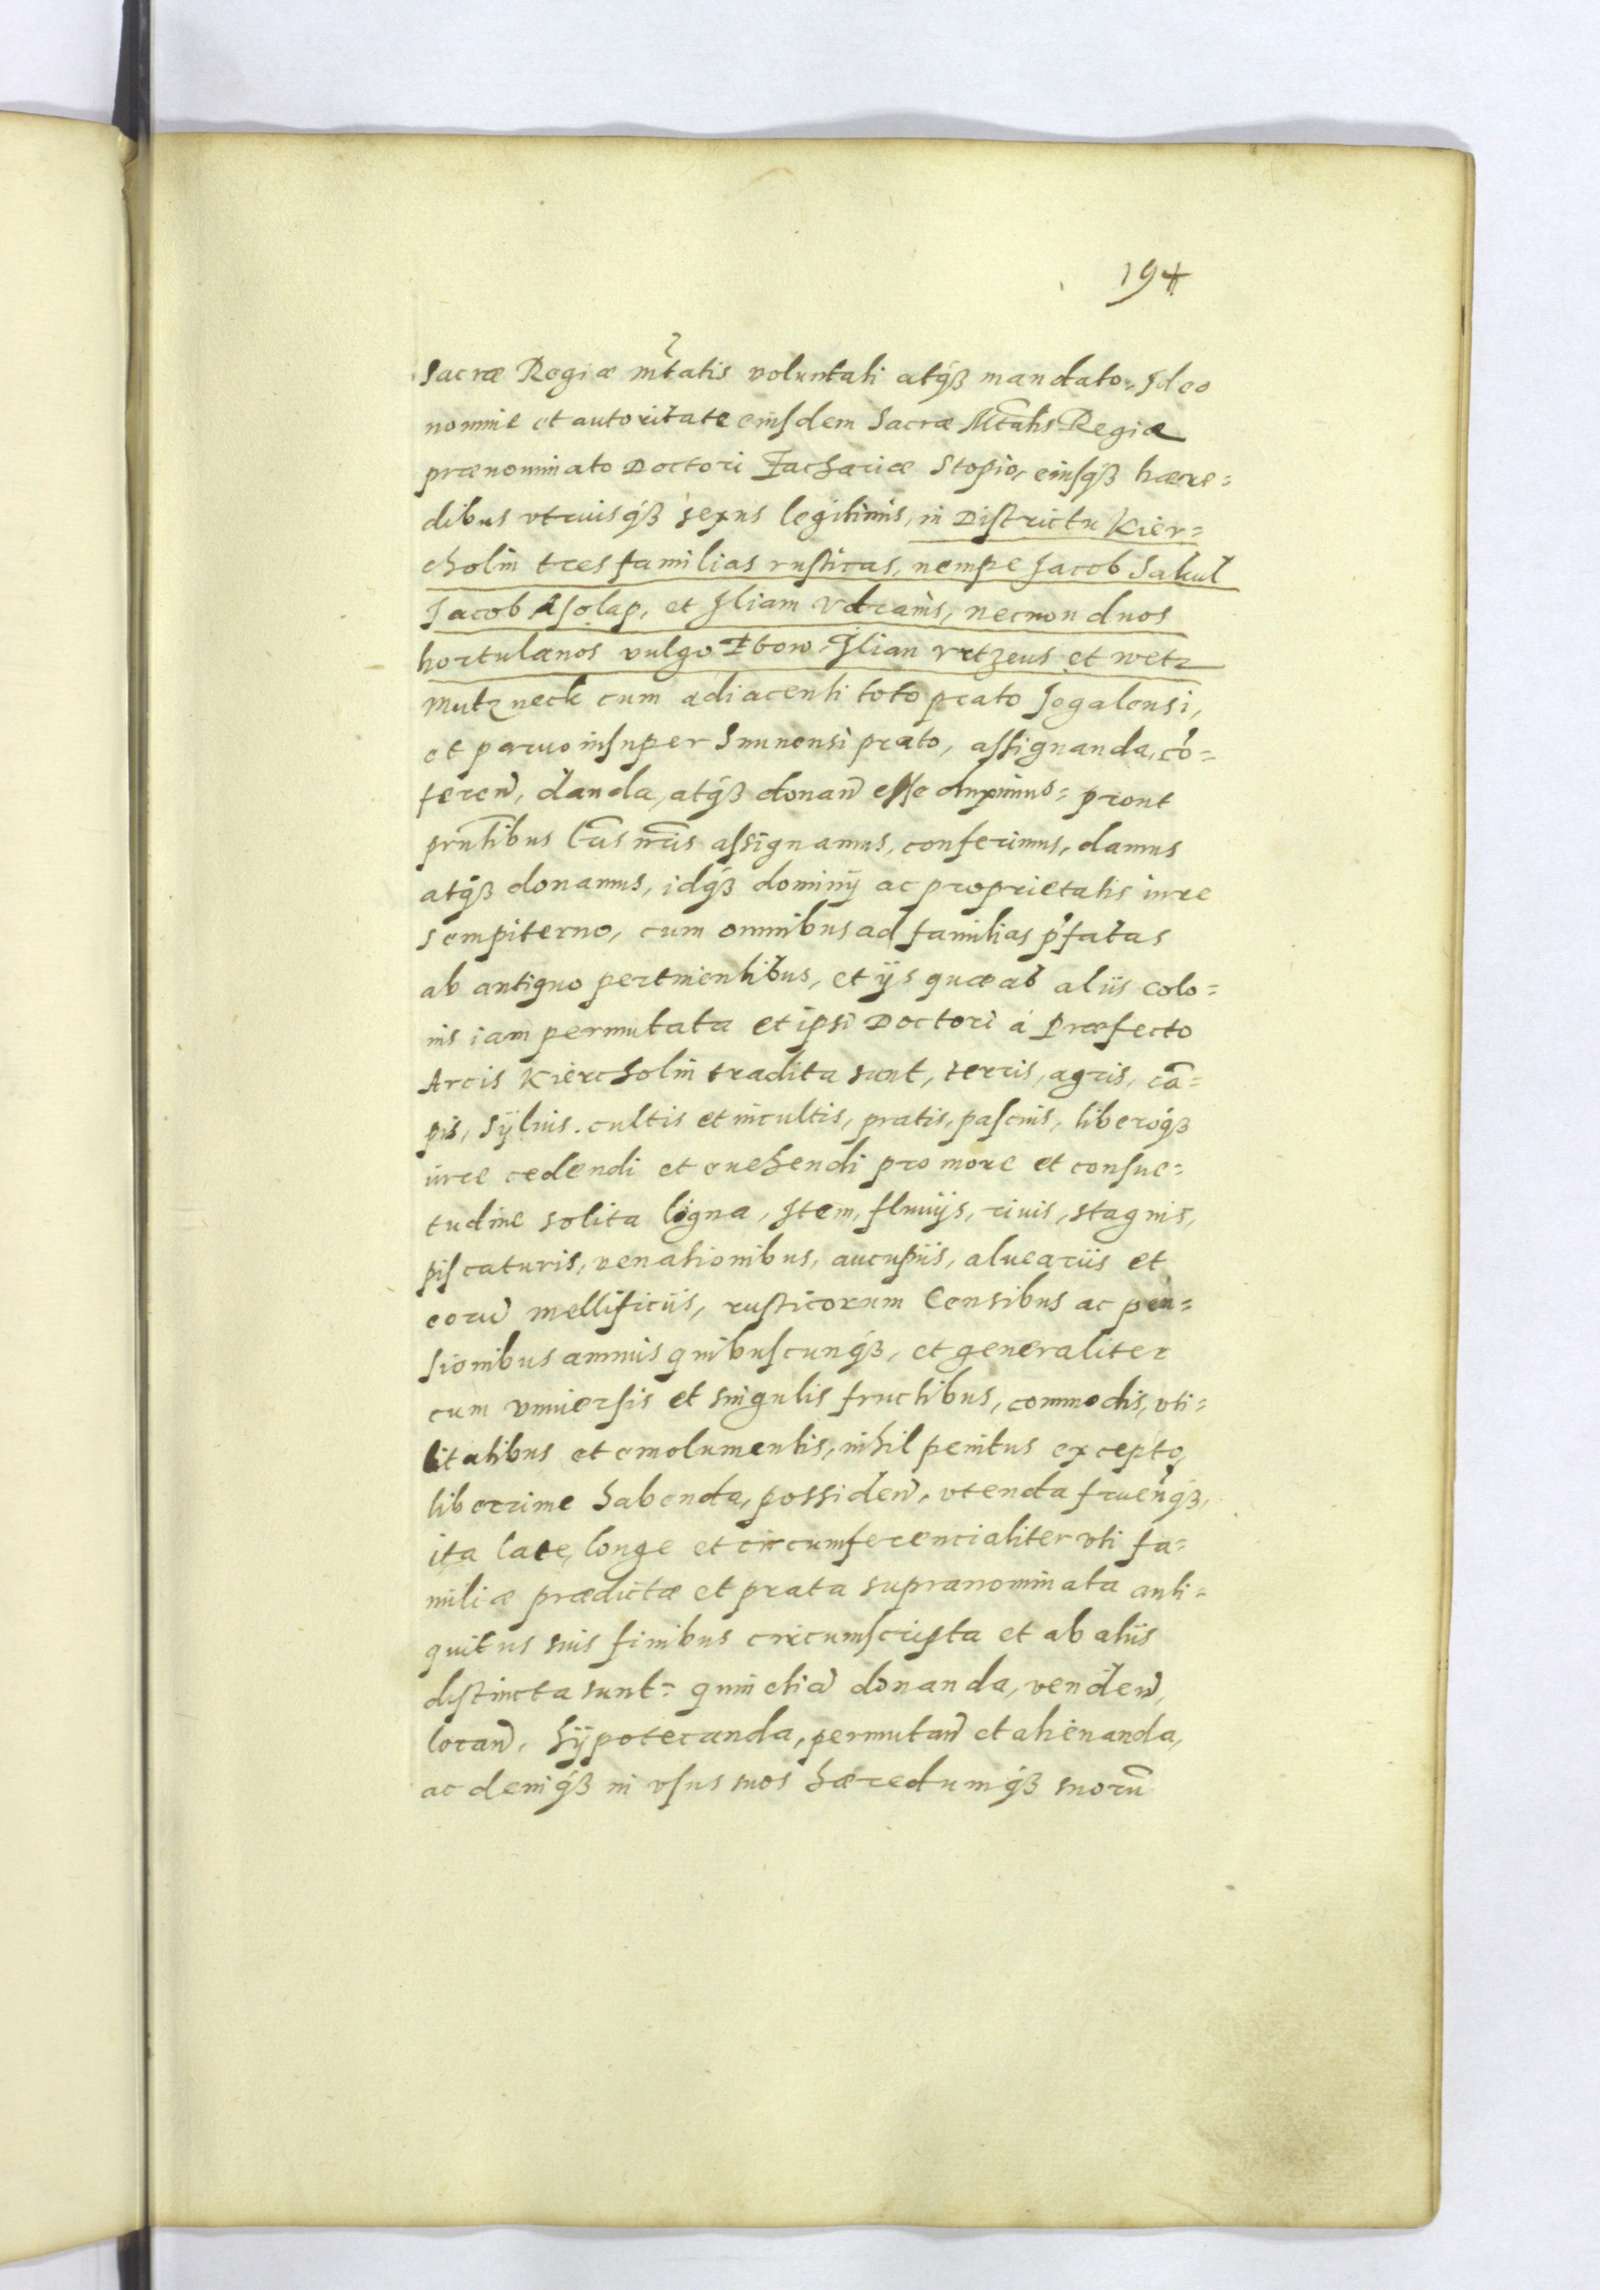 194
Sacræ Regiæ mtatis voluntati atq́ꝫ mandato: Ideo
nomine et autoritate eiusdem Sacræ Mtatis Regiæ
prænominato Doctori Zachariæ Stopio, eiusq́ꝫ hære=
dibus vtriusq́ꝫ sexus legitimis, in Districtu Kier=
cholm tres familias rusticas, nempe Jacob Sakul
Jacob Asolap, et Iliam Vdrams, necnon duos
hortulanos vulgo Ibow Ilian Vrtzeus et wetz
Mutzneck cum adiacenti toto prato Jogalensi,
et paruo insuper Smunensi prato, assignanda, cō=
feren̄, danda, atq́ꝫ donan̄ esse duximus: prout
prntibus l̄ris nr̄is assignamus, conferimus, damus
atq́ꝫ donamus, idq́ꝫ dominij ac proprietatis iure
sempiterno, cum omnibus ad familias p̄fatas
ab antiquo pertinentibus, et ijs quæ ab aliis colo=
nis iam permutata et ipsi Doctori á Præfecto
Arcis Kiercholm tradita sunt, terris, agris, cā=
pis, sÿluis. cultis et incultis, pratis, pascuis, liberoq́ꝫ
iure cedendi et euehendi pro more et consue=
tudine solita ligna, Item, fluuijs, riuis, stagnis,
piscaturis, venationibus, aucupiis, alueariis et
eorū mellificiis, rusticorum Censibus ac pen=
sionibus annuis quibuscunq́ꝫ, et generaliter
cum vniuersis et singulis fructibus, commodis, vti=
litatibus et emolumentis, nihil penitus excepto,
liberrime habenda, possiden̄, vtenda fruen̄q́ꝫ,
ita late, longe et circumferencialiter vti fa=
miliæ prædictæ et prata supranominata anti=
quitus suis finibus circumscripta et ab aliis
distincta sunt: quin etiā donanda, venden̄,
locan̄, hÿpotecanda, permutan̄ et alienanda,
ac deniq́ꝫ in vsus suos hæredumq́ꝫ suorū